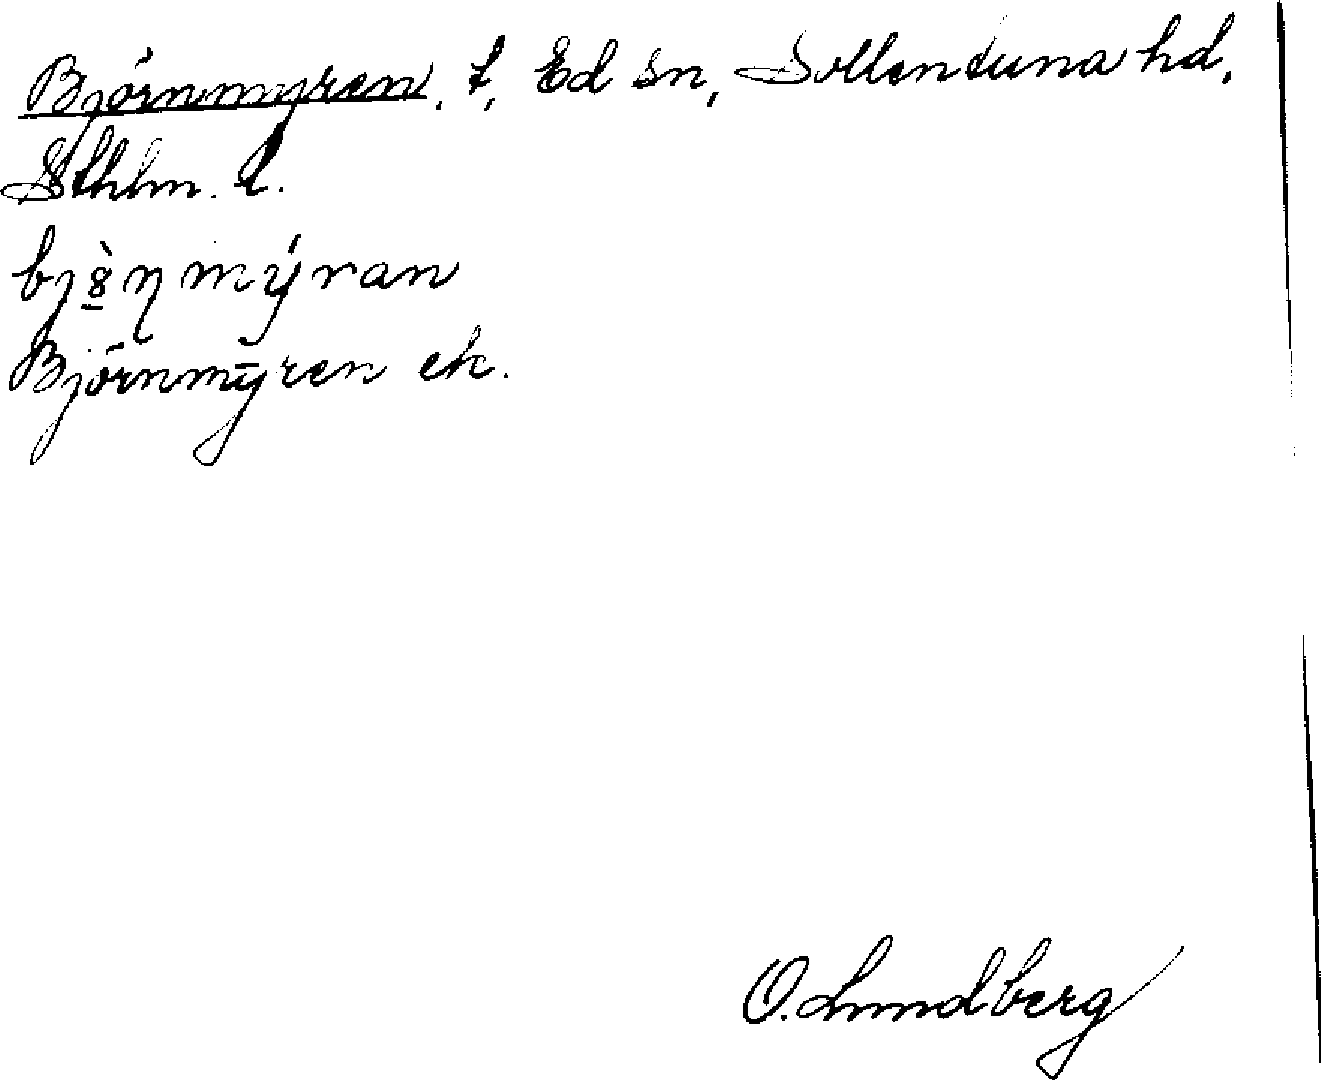 Björnmyren, t, Ed sn, Sollentuna hd,
Sthlm. l.
Björnmyren ek.
O. Lundberg